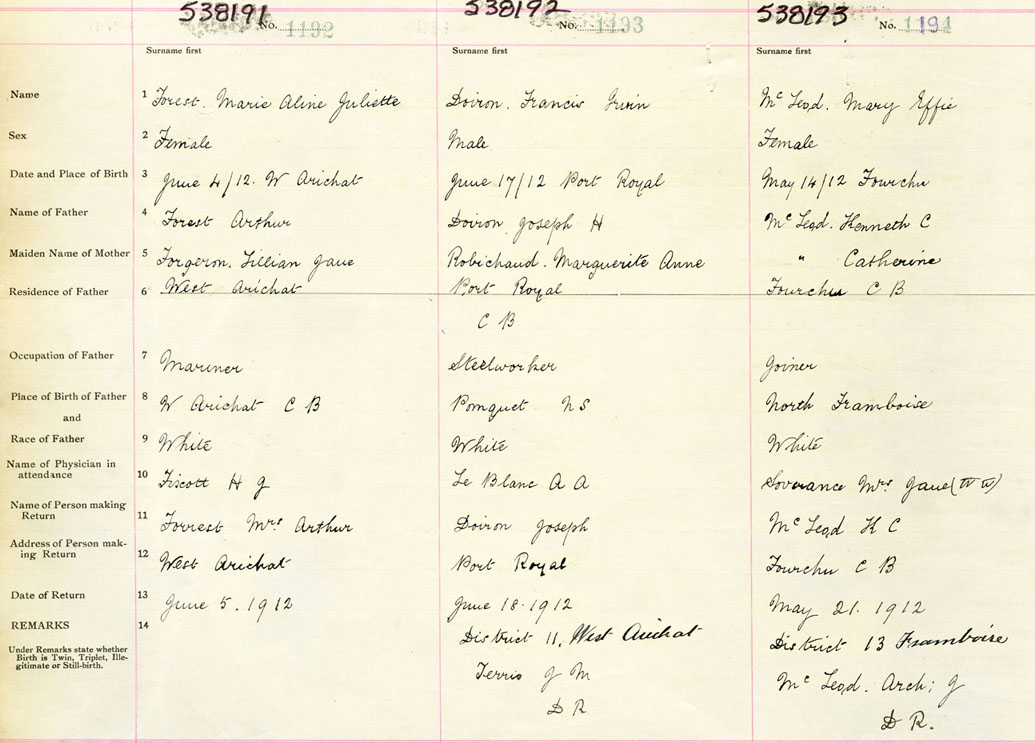 538191 No. 1192 538192 No. 1193 538193 No. 1194
Surname first Surname first Surname first
Name 1 Forest. Marie Aline Juliette Doiron. Francis Irvin Mc Leod. Mary Effie
Sex 2 Female Male Female
Date and Place of Birth 3 June 4/12. W Arichat June 17/12 Port Royal May 14/12 Fourchu
Name of Father 4 Forest Arthur Doiron Joseph H Mc Leod. Kenneth C
Maiden Name of Mother 5 Forgeron. Lillian Jane Robichaud. Marguerite Anne " Catherine
Residence of Father 6 West Arichat Port Royal Fourchu C B
C B
Occupation of Father 7 Mariner Steelworker Joiner
Place of Birth of Father 8 W Arichat C B Pomquet N S North Framboise
and
Race of Father 9 White White White
Name of Physician in
attendance 10 Fiscott H J Le Blanc A A Severance Mrs Jane
Name of Person making
Return 11 Forrest Mrs Arthur Doiron Joseph Mc Leod K C
Address of Person mak-
ing Return 12 West Arichat Port Royal Fourchu C B
Date of Return 13 June 5. 1912 June 18. 1912 May 21. 1912
REMARKS 14 District 11, West Arichat District 13 Framboise
Under Remarks state whether
Birth is Twin, Triplet, Ille-
gitimate or Still-birth.
Terrio J M Mc Leod. Arch: J
D R D R.